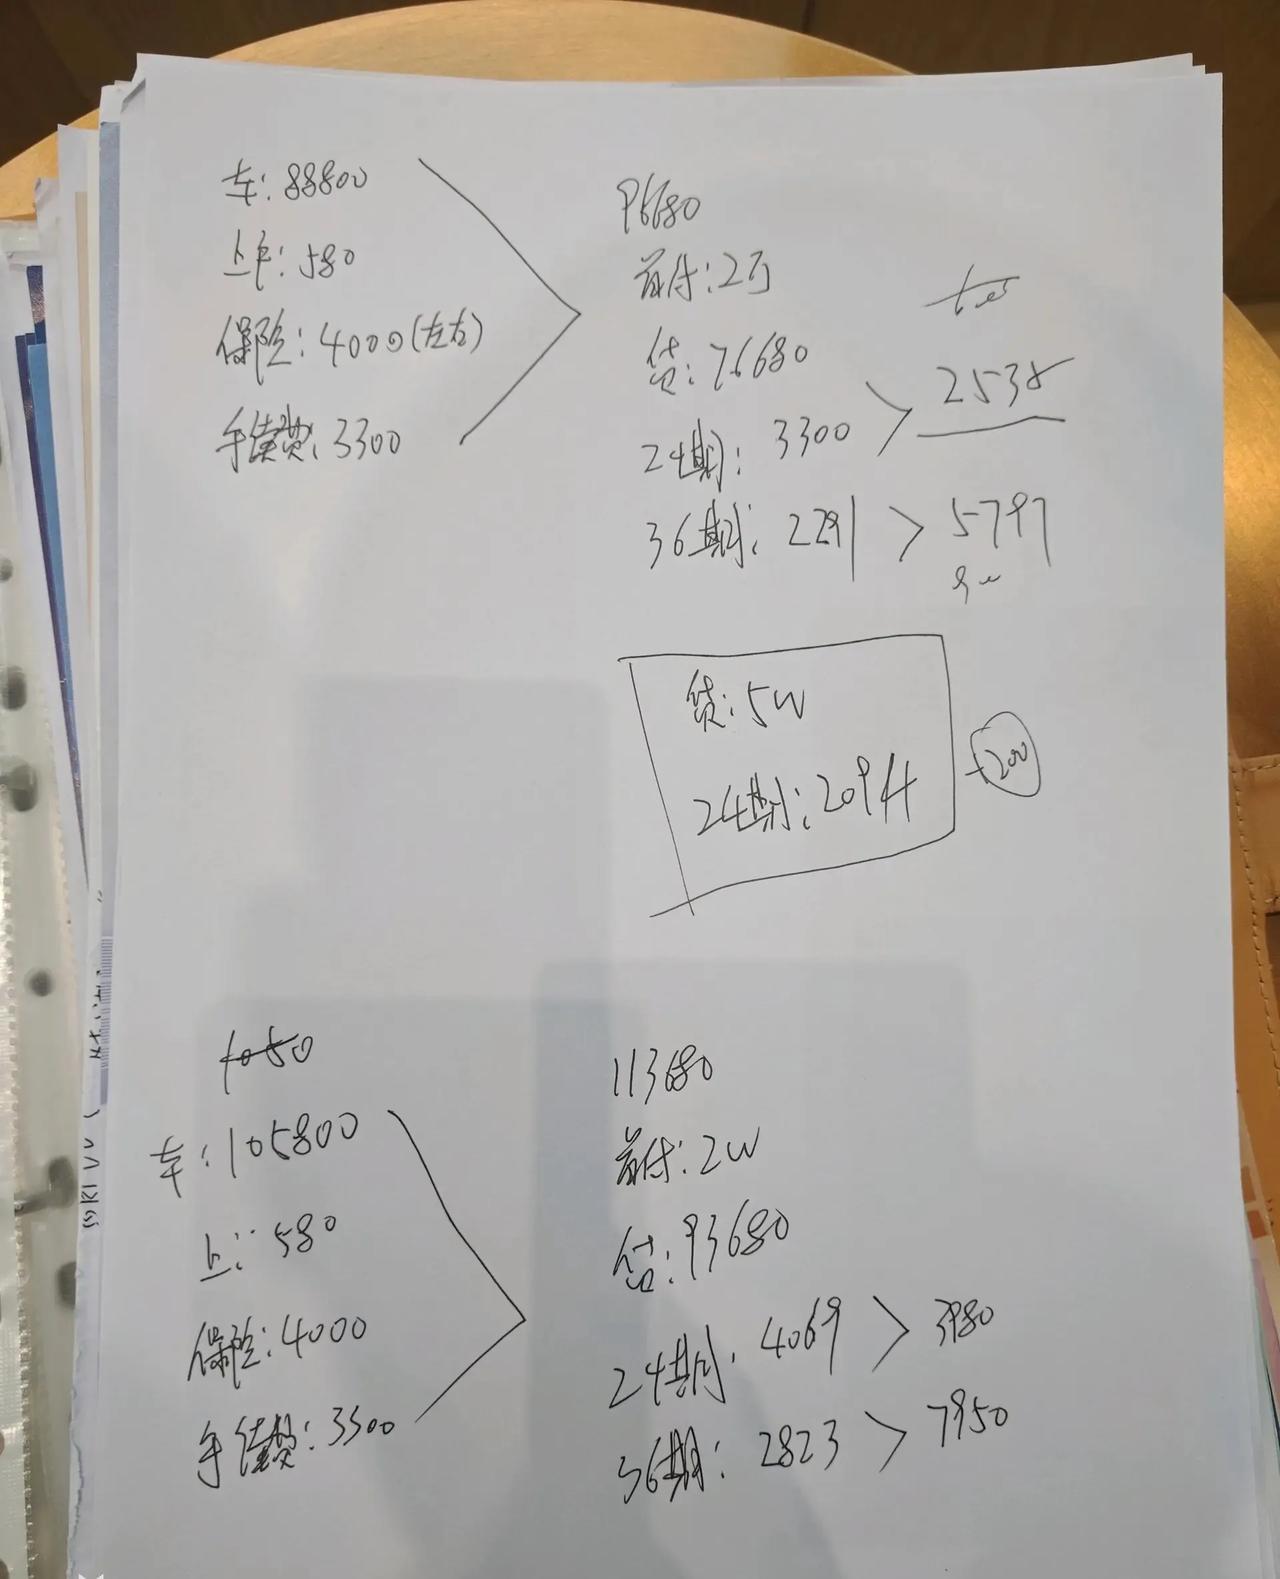 车: 88800
上户: 580
保险: 4000(左右)
手续费: 3300
96680
首付: 2万
贷: 76680
24期: 3300 > 2538
36期: 2291 > 5797
贷: 5W
24期: 2094
200
1050
车: 105800
上: 580
保险: 4000
手续费: 3300
113680
首付: 2W
贷: 93680
24期: 4069 > 3980
36期: 2823 > 7950